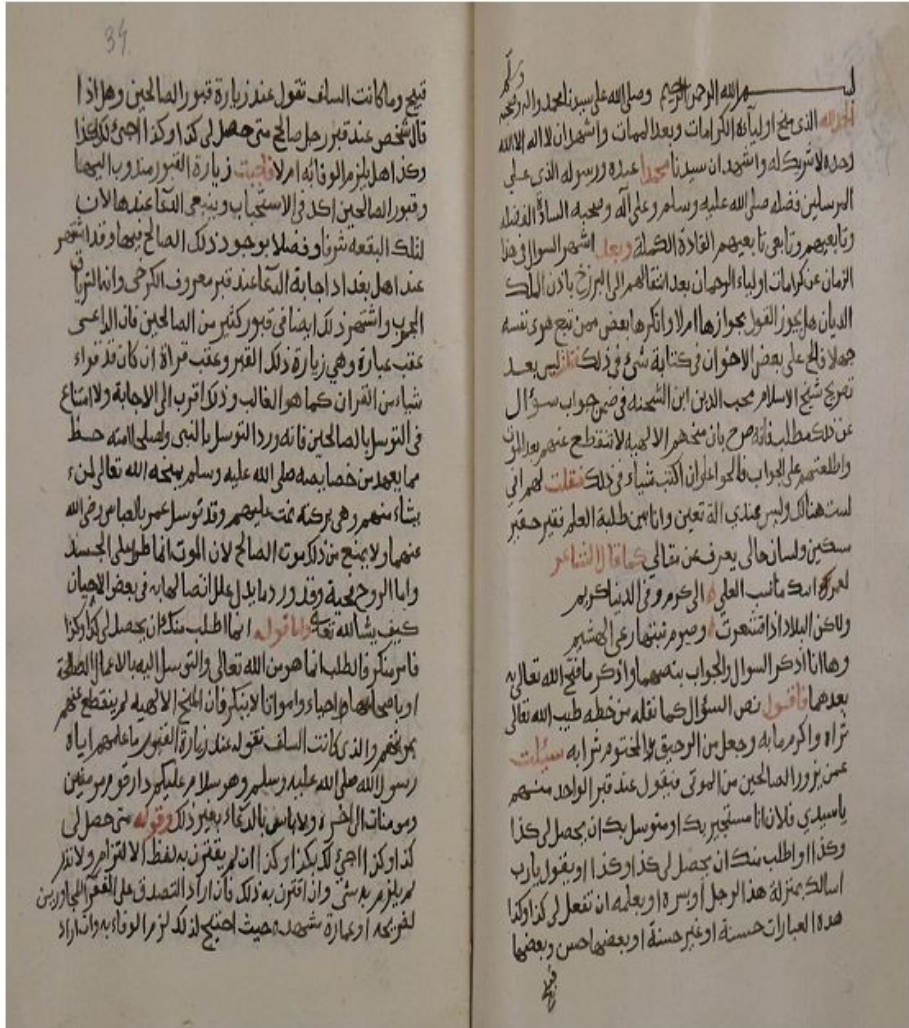 بسم الله الرحمن الرحيم وصلى الله على سيدنا محمد واله وصحبه وسلم
الحمد لله الذي منح اولياءه الكرامات وبعد الممات واشهد ان لا اله الا الله
وحده لا شريك له واشهد ان سيدنا محمدا عبده ورسوله الذي على
المرسلين فضله صلى الله عليه وسلم وعلى آله وصحبه السادة الفضلة
وتابعيهم وتابعي تابعيهم القادة الكملة وبعد اشتهر السوال في هذا
الزمان عن كرامات اولياء الرحمان بعد انتقالهم الى البرزخ باذن الملك
الديان هل يجوز القول بجوازها ام لا وانكرها بعض ممن تبع هوى نفسه
جهلا فالح على بعض الاخوان في كتابة شئ في ذلك فقلت ليس بعد
تصريح شيخ الاسلام محب الدين ابن الشحنه في ضمن جواب سؤال
عن ذلك مطلب فانه صرح بان منحهم الالهية لا تنقطع عنهم بعد الموت
واطلعتهم على الجواب فالحوا على ان اكتب شياء في ذلك فقلت لهم اني
لست هنالك وليس عندي الة تعين وانا من طلبة العلم فقير حقير
سكين ولسان حالي يعرف عن مقالي كما قال الشاعر
لعمرك ما نسب العلى الى كرم وفي الدنيا كريم
ولاكن البلاد اذا قشعرت وصوح نبتها رعى الهشيم
وها انا اذكر السوال والجواب بنصهما واذكر ما فتح الله تعالى به
بعدهما فاقول نص السؤال كما نقله من خطه طيب الله تعالى
ثراه واكرم مابه وجعل من الرحيق المختوم شرابه سئلت
عمن يزور الصالحين من الموتى فيقول عند قبر الواحد منهم
يا سيدي فلان انا مستجير بك او متوسل بك ان يحصل لي كذا
وكذا او اطلب منك ان يحصل لي كذا وكذا او يقول يارب
اسالك بمنزلة هذا الرجل او بسره او بعلمه ان تفعل لي كذا وكذا
هذه العبارات حسنة او غير حسنة او بعضها حسن وبعضها
قبيح
34
قبيح وما كانت السلف تقول عند زيارة قبور الصالحين وهل اذا
قال شخص عند قبر رجل صالح متى حصل لي كذا وكذا اجئ لك بكذا
وكذا هل يلزم الوفا به ام لا فاجبت زيارة القبور مندوب اليها
وقبور الصالحين اكد في الاستحباب وينبغي الدعا عندها لان
لتلك البقعه شرفا وفضلا بوجود ذلك الصالح فيها وقد اشتهر
عند اهل بغداد اجابة الدعا عند قبر معروف الكرخي وانه الترياق
المجرب واشتهر ذلك ايضا في قبور كثير من الصالحين فان الداعي
عقب عبارة وهي زيارة ذلك القبر وعقب قراة ان كان قد قراء
شياء من القران كما هو الغالب وذلك اقرب الى الاجابة ولا امتناع
في التوسل بالصالحين فانه ورد التوسل بالنبي ولصلحى امته حظ
مما يعهد من خصايصه صلى الله عليه وسلم يمنحه الله تعالى لمن
يشاء منهم وهي بركته تمت عليهم وقد توسل عمر بالعباس رضي الله
عنهما ولا يمنع من ذلك موت الصالح لان الموت انما طرا على الجسد
واما الروح فحية وقد ورد ما يدل على اتصالها به في بعض الاحيان
كيف يشاء الله تعالى واما قوله انما اطلب منك ان يحصل لي كذا وكذا
فامر منكر والطلب انما هو من الله تعالى والتوسل اليه بالاعمال الصالحة
او باصحابها احياء وامواتا لا ينكر فان المنح الالهيه لم ينقطع عنهم
بموتهم والذي كانت السلف تقوله عند زيارة القبور ما علمهم اياه
رسول الله صلى الله عليه وسلم وهو سلام عليكم دار قوم مومنين
ومومنات الى اخره ولا باس بالدعاء بغير ذلك وقوله متى حصل لي
كذا وكذا اجئ لك بكذا وكذا ان لم يقترن به لفظ الالتزام ولا نذر
لم يلزم به شئ وان اقترن به ذلك فان اراد التصدق على الفقرا المجاورين
لضريحه او عمارة مشهده حيث احتيج لذلك لزم الوفاء به وان اراد